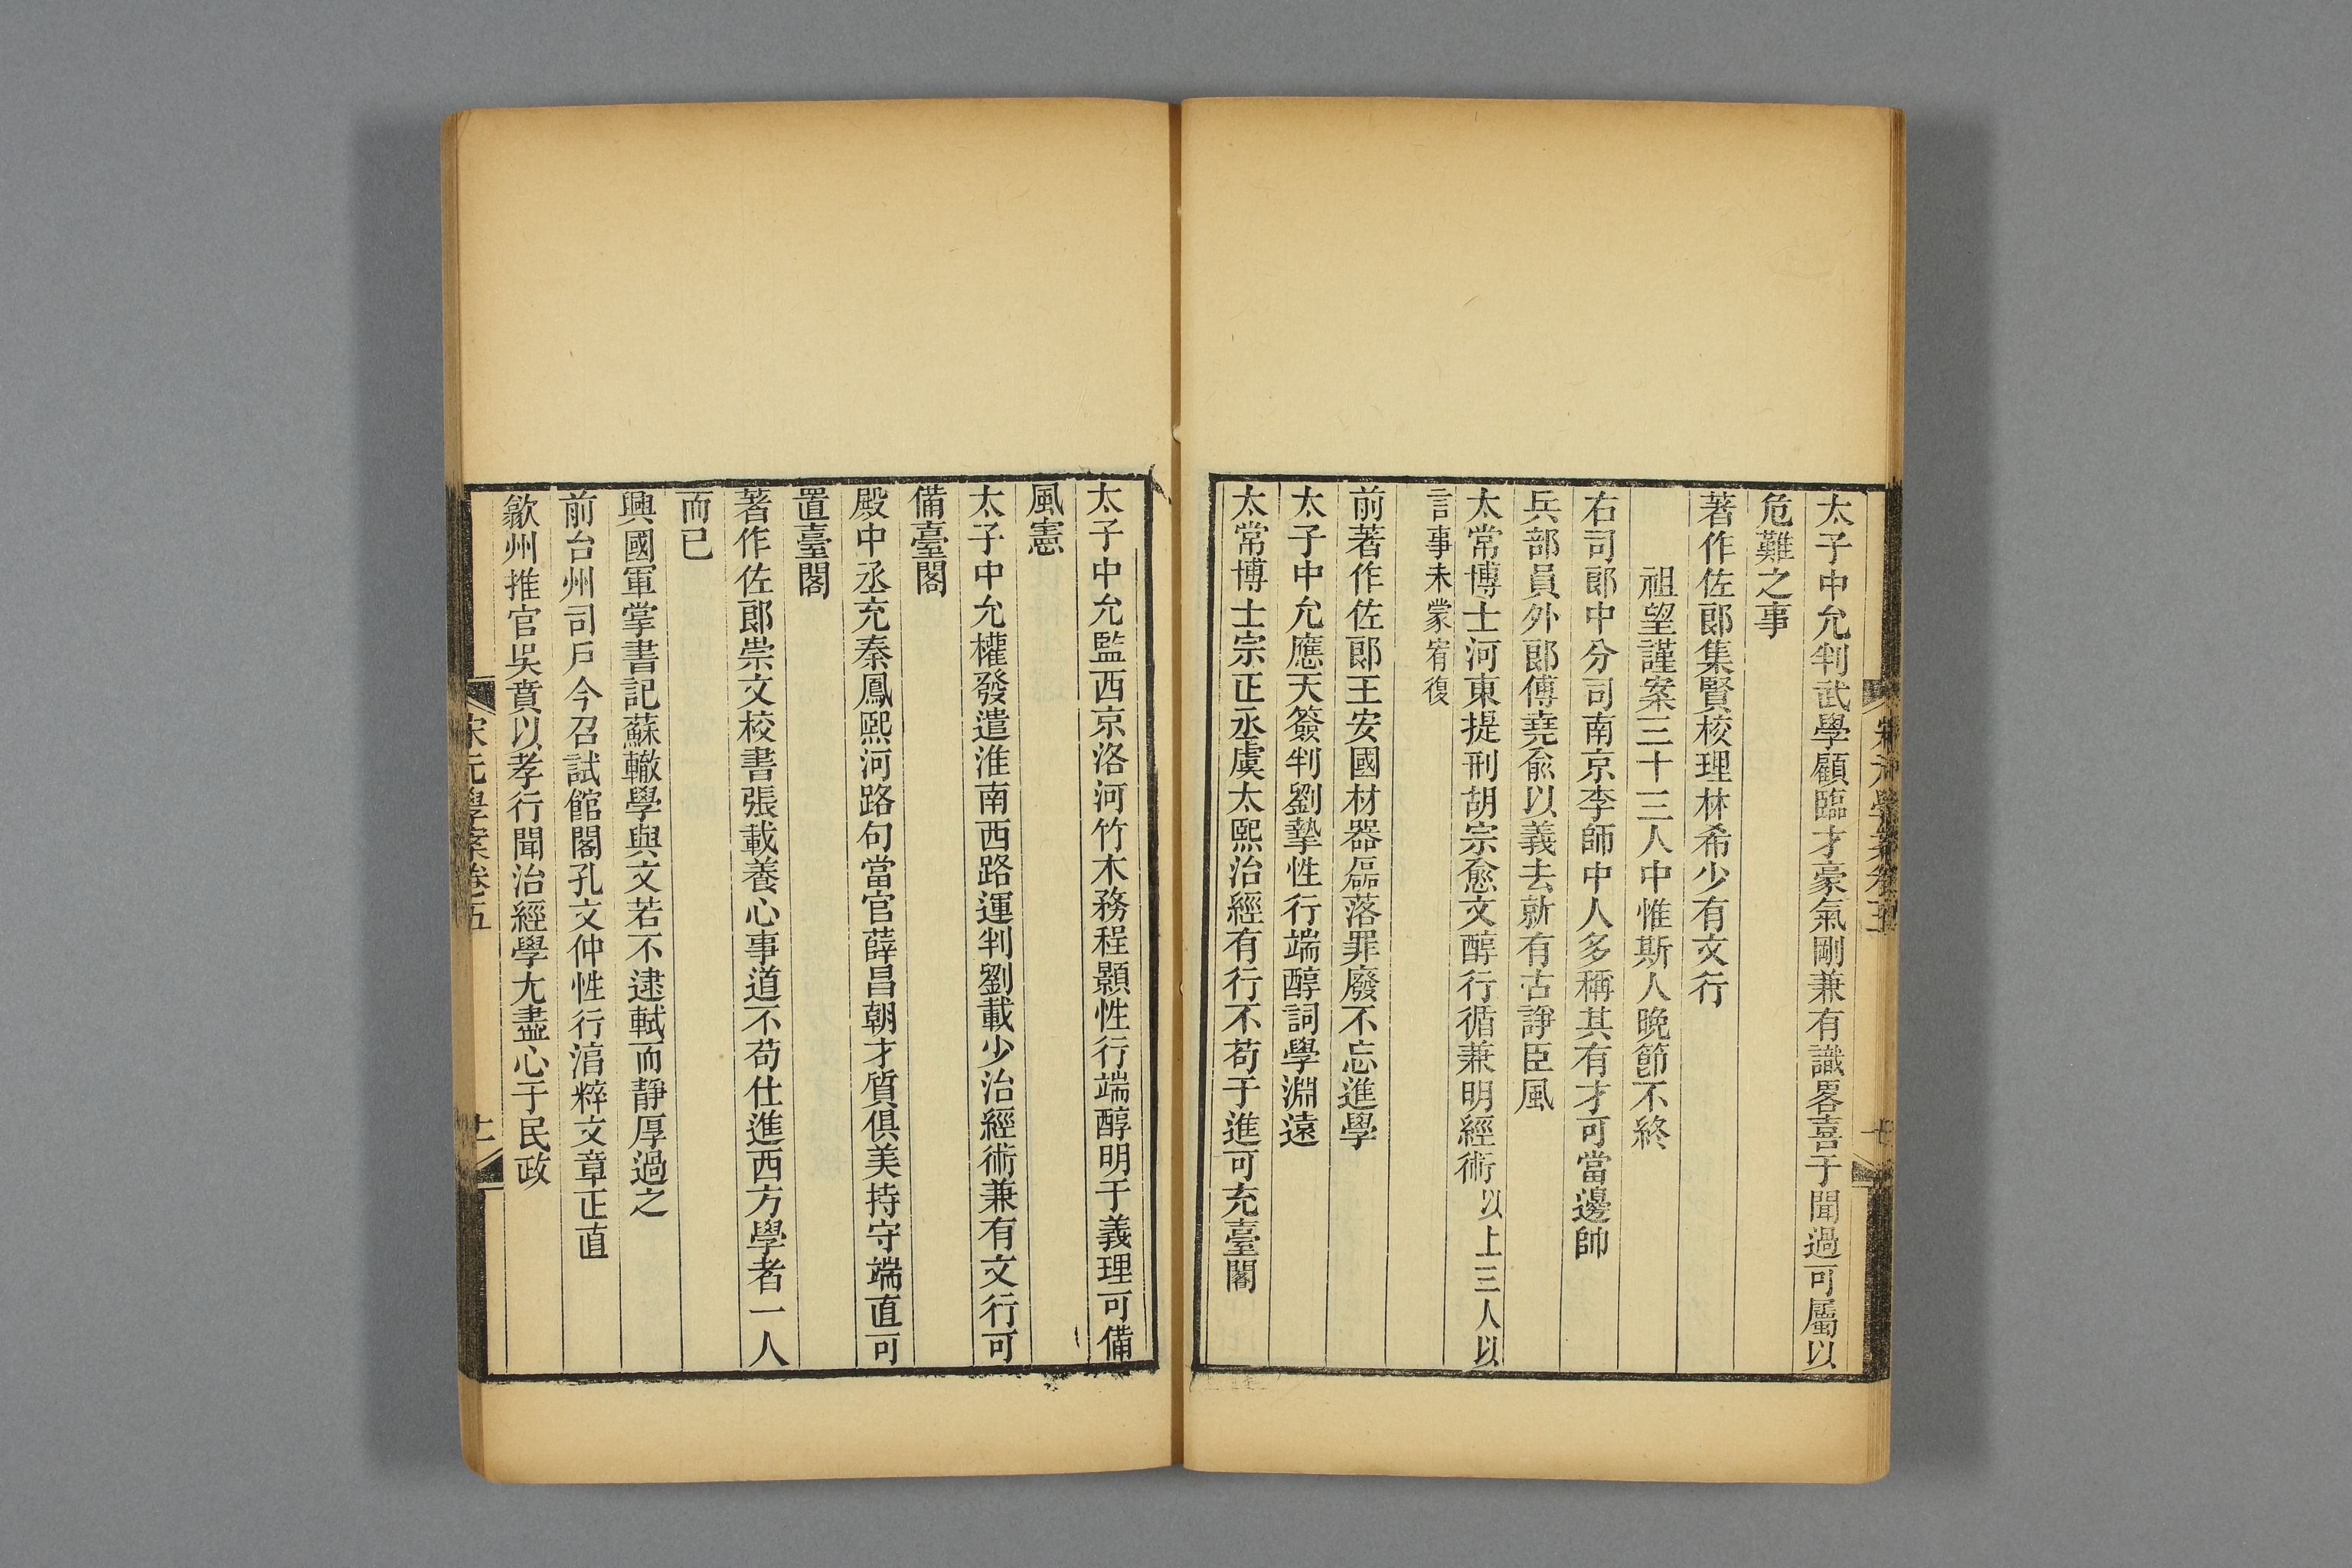 太子中允判武學顧臨才豪氣剛兼有識畧喜于聞過可屬以
危難之事
著作佐郎集賢校理林希少有文行
祖望謹案三十三人中惟斯人晚節不終
右司郎中分司南京李師中人多稱其有才可當邊帥
兵部員外郎傅堯俞以義去就有古諍臣風
太常博士河東提刑胡宗愈文醇行循兼明經術以上三人以
言事未蒙宥復
前著作佐郎王安國材器磊落罪廢不忘進學
太子中允應天簽判劉摯性行端醇詞學淵遠
太常博士宗正丞虞太熙治經有行不苟于進可充臺閣
太子中允監西京洛河竹木務程顥性行端醇明于義理可備
風憲
太子中允權發遣淮南西路運判劉載少治經術兼有文行可
備臺閣
殿中丞充秦鳳熙河路句當官薛昌朝才質俱美持守端直可
置臺閣
著作佐郎崇文校書張載養心事道不苟仕進西方學者一人
而已
興國軍掌書記蘇轍學與文若不逮軾而靜厚過之
前台州司戶今召試館閣孔文仲性行淯粹文章正直
歙州推官吳賁以孝行聞治經學尤盡心于民政
宋元學案卷五